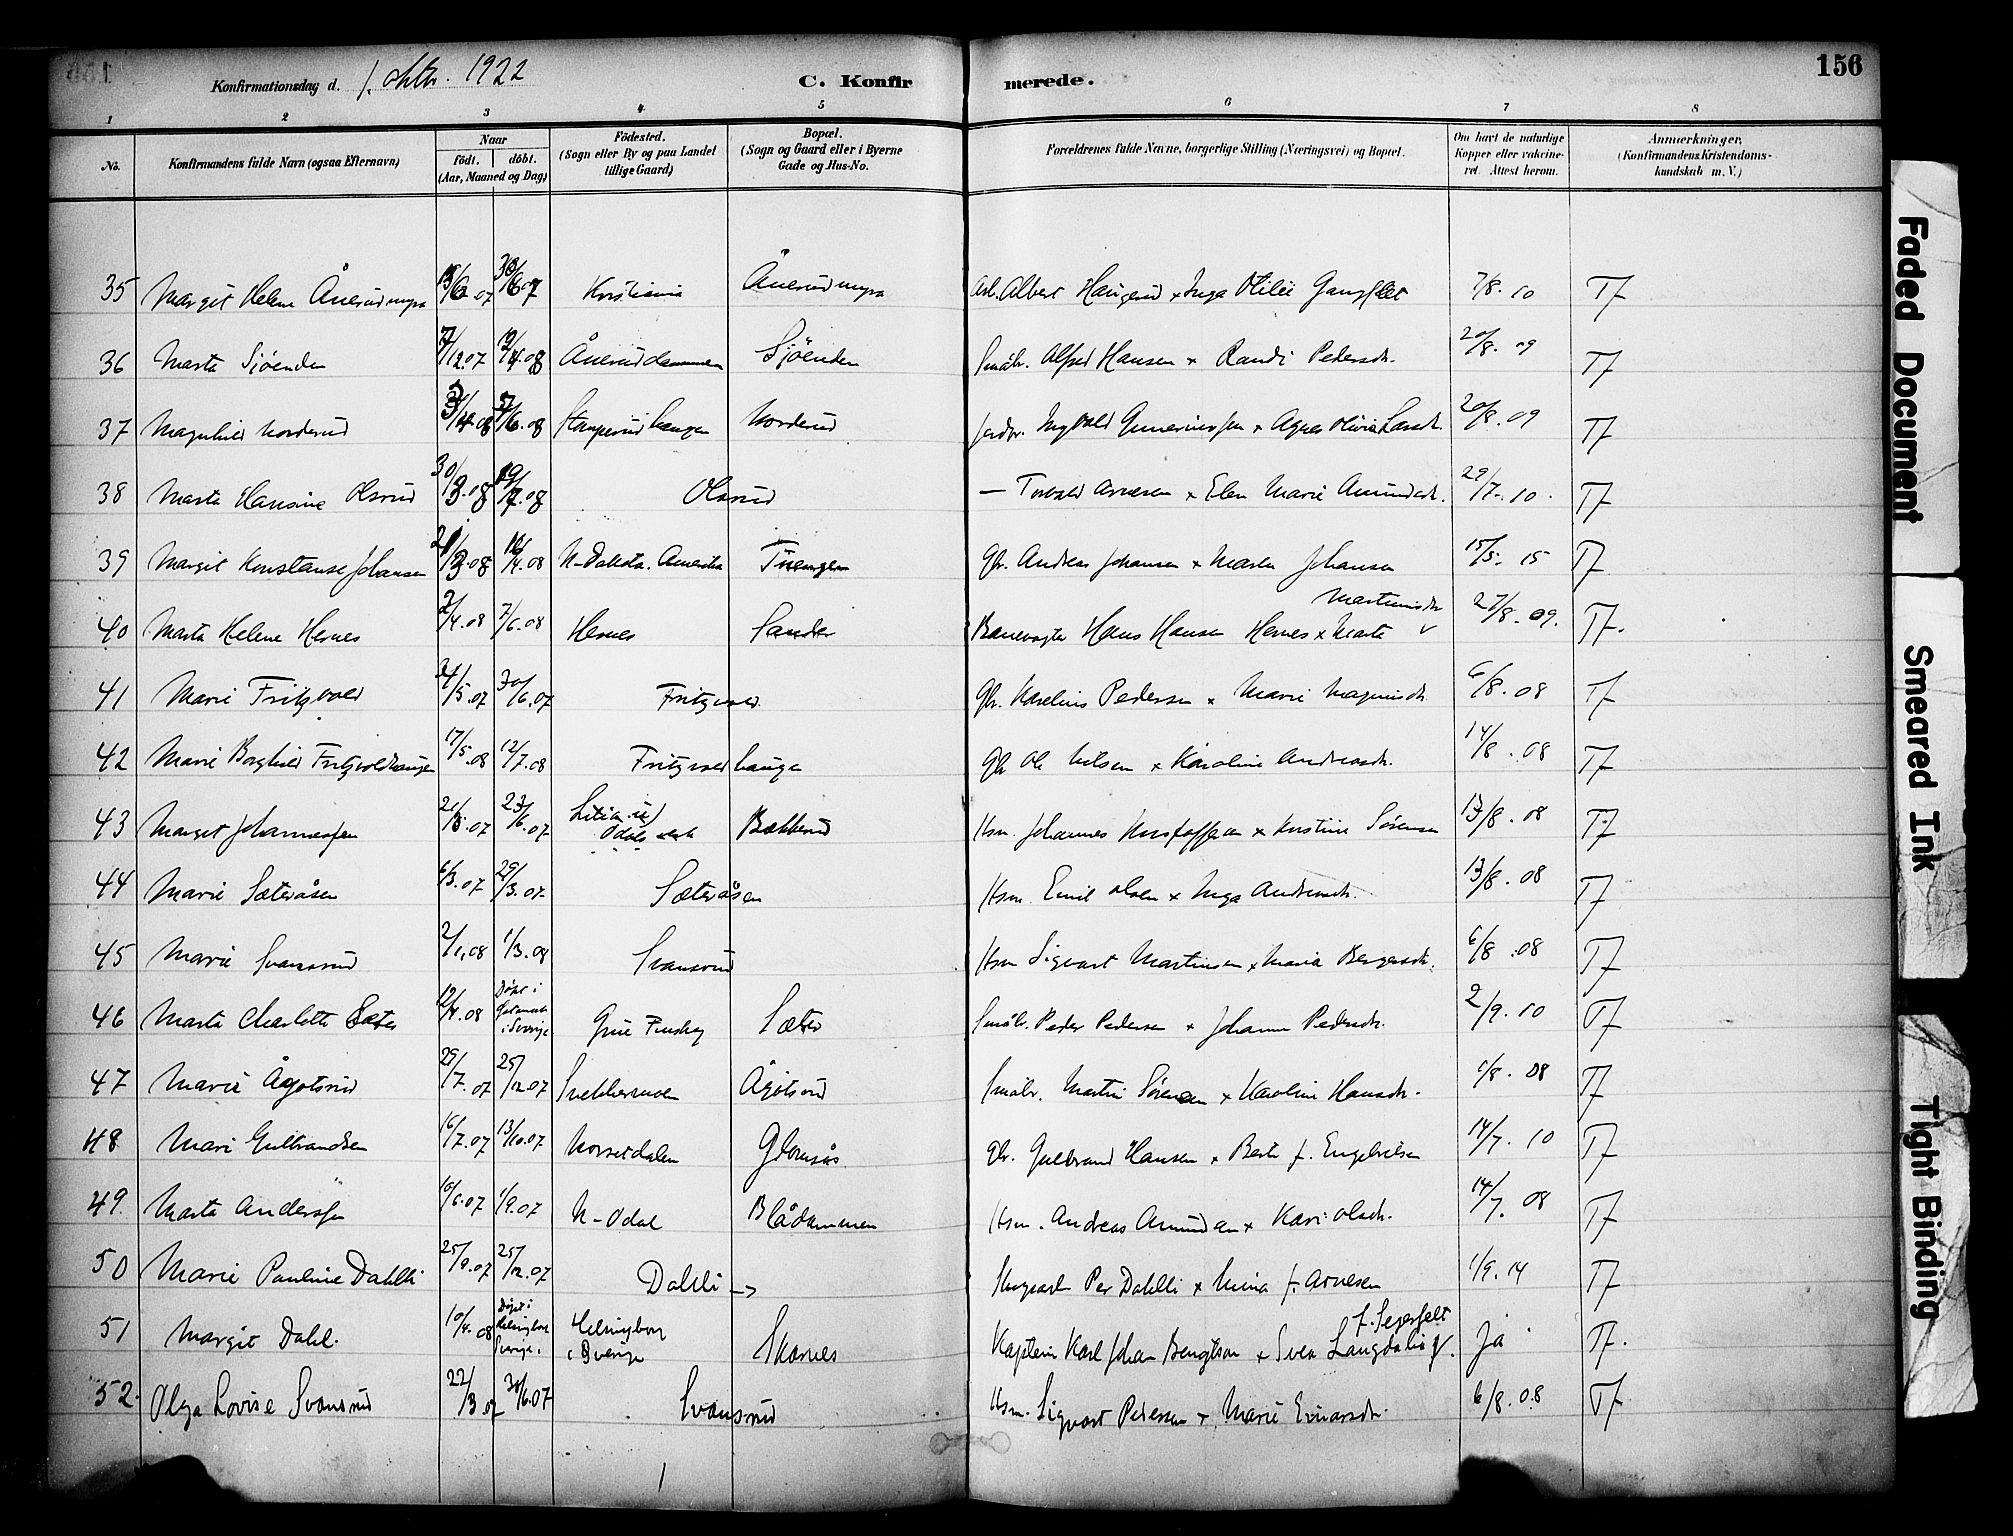 Konfirmationsdag d. 1. Oktbr. 1922 C. Konfirmerede. 156
1 2 3 4 5 6 7 8
No. Konfirmandens fulde Navn (ogsaa Efternavn) Naar födt. döbt. (Aar, Maaned og Dag) Födested. (Sogn eller By og paa Landet tillige Gaard) Bopæl. (Sogn og Gaard eller i Byerne Gade og Hus-No. Forældrenes fulde Navne, borgerlige Stilling (Næringsvei) og Bopæl. Om havt de naturlige Kopper eller vakcineret. Attest herom. Anmærkninger, (Konfirmandens Kristendomskundskab m. V.)
35 Margit Helene Ånerudmyra 07 30/6 07 Kristiania Ånerudmyra Arb. Albert Haugerud x Inga Otilie 7/8. 10 T7
36 Marta Sjøenden /12.07 /4.08 Åneruddammen Sjøenden Småbr. Alfred Hansen x Randi Pedersdr. 20/8. 09 T7
37 Magnhild Norderud 08 /6.08 Stamperudhaugen Norderud Jordbr. Ingvald Guneriussen x Agnes Olivia Larsdr. 20/8. 09 T7
38 Marta Hansine Olsrud 30/3.08 08 Olsrud — Torvald Arnesen x Elen Marie Amundsdr. 29/7. 10. T7
39 Margit Konstanse Johansen /3.08 16/4.08 N-Dakota. Amerika Tuengen Gbr. Andreas Johansen x Marta Johansen 15/5. 15 T7
40 Marta Helene Hernes 2/4.08 7/6.08 Hernes Sander Banevogter Hans Hansen Hernes x Marte Martinusdr 27/8. 09. T7.
41 Marie Fritzvold 24/5.07 30/6.07 Fritzvold Gbr. Karelius Pedersen x Marie Magnusdr. 6/8. 08 T7
42 Marie Borghild Fritzvoldhaugen 17/5.08 12/7.08 Fritzvoldhaugen Gbr Ole Nilsen x Karoline Andreasdr. 14/8. 08 T7
43 Margit Johannessen 21/5.07 23/6.07 Odals verk Bækkerud Hsm. Johannes Kristoffersen x Kristine Sørensen 13/8. 08 T7
44 Marie Sæteråsen 6/3.07 29/3.07. Sæteråsen Hsm. Emil Olsen x Inga Andreasdr. 13/8. 08 T7
45 Marie Svansrud 2/1.08 1/3.08 Svansrud Hsm Sigvart Martinsen x Maria Bergersdr. 6/8. 08 T7
46 Marta Charlotte Sæter 12/4.08 Døbt i i Sverige Grue Finskog Sæter Småbr. Peder Pedersen x Johanne Pedersdr. 2/9. 10 T7
47 Marie Ågotsrud 29/7.07 25/12.07 Ågotsrud Småbr. Martin Sørensen x Karoline Hansdr. 6/8. 08 T7
48 Mari Gulbrandsen 16/7.07 13/10.07 Norsetdalen Glomsås Gbr. Gulbrand Hansen x Berte f. Engebretsen 14/7. 10 T7
49. Marta Anderssen 10/6.07 1/9.07 N-Odal Blådammen Hsm. Andreas Amundsen x Kari Olsdr. 14/7. 08 T7
50 Marie Pauline Dahlli 25/9.07 25/12.07 Dahlli Skogsarb Per Dahlli x Mina f. Arnesen 1/9. 14 T7
51 Margit Dahl. 10/4.08 Døbt i Helsingborg Sverige. Helsingborg i Sverige Skarnes Kaptein Karl Johan Bengtson x Svea Langdahl f. Segerfelt Ja T7.
52. Olga Lovise Svansrud 22/3.07 30/6.07 Svansrud Hsm. Sigvart Pedersen x Marie Einarsdr. 6/8. 08 T7.
Faded Document
Smeared Ink
Tight Binding